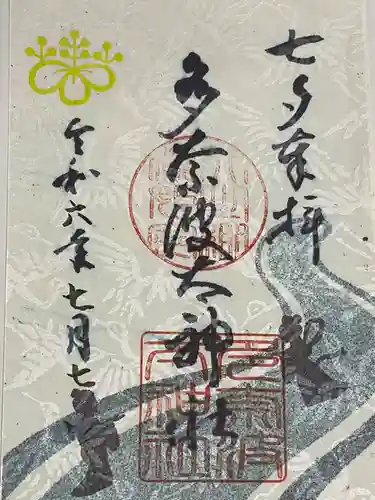 七夕奉拝
多奈波太神社
令和六年七月七日